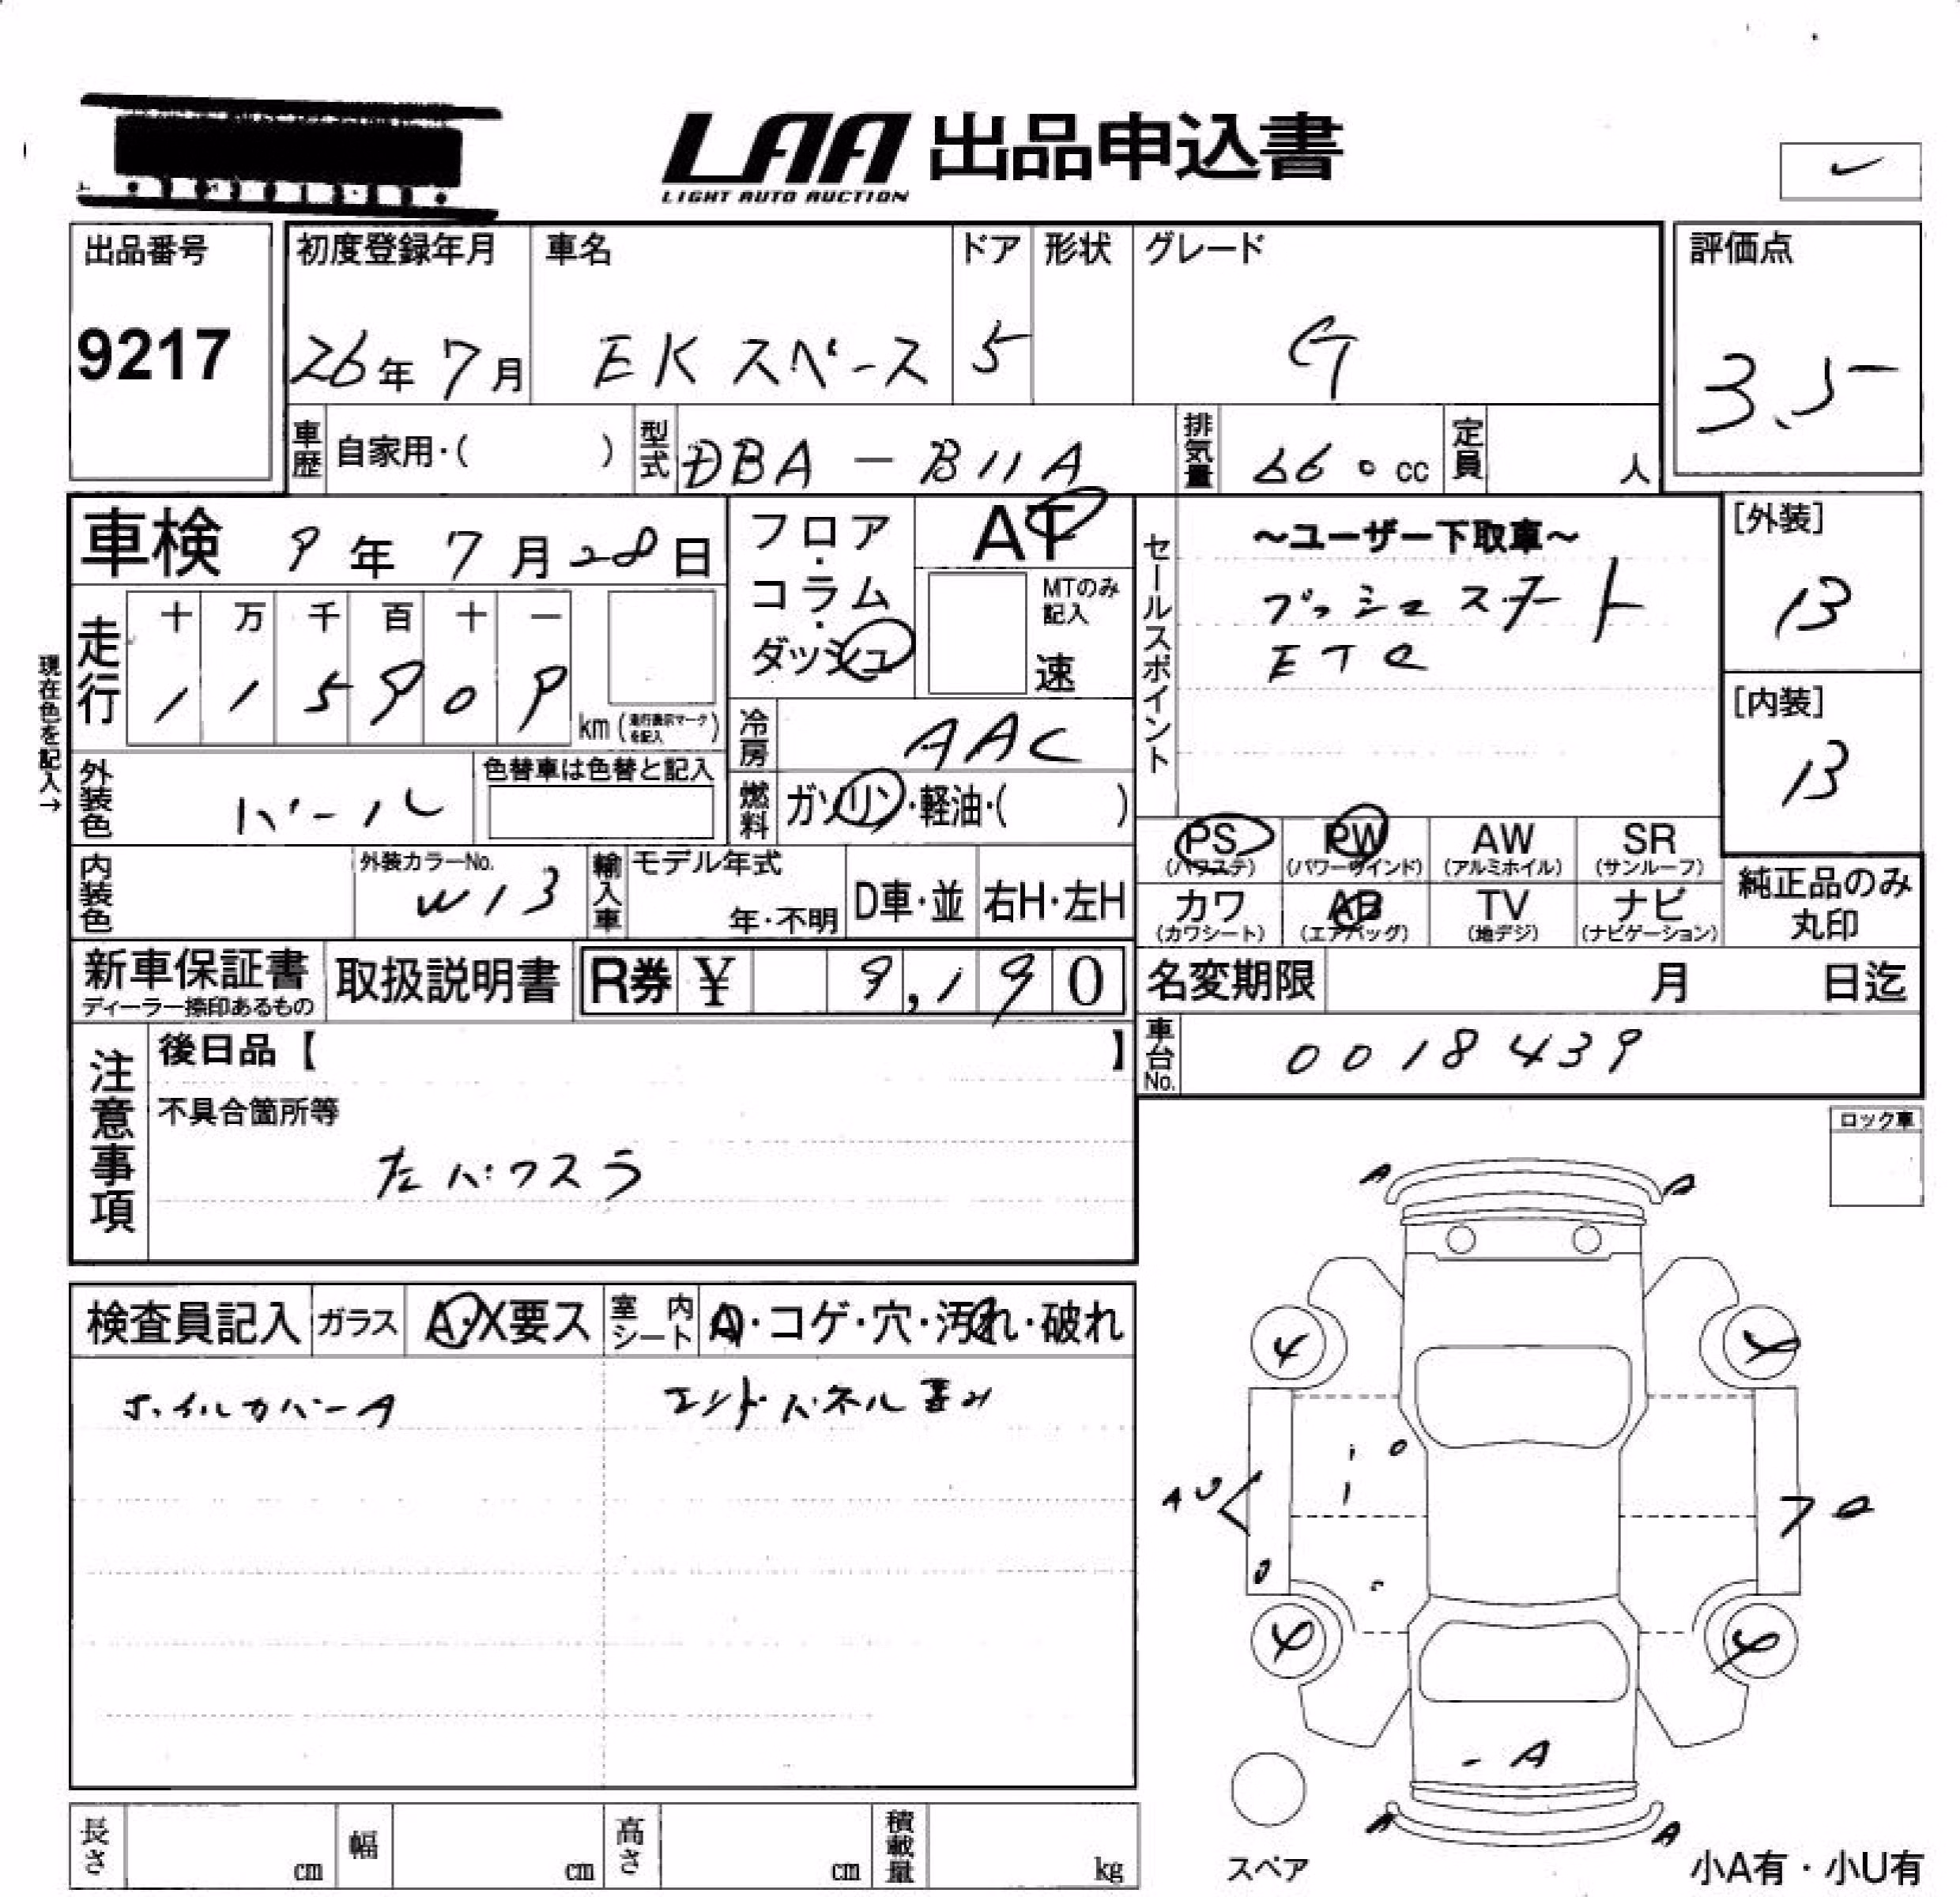 LAA 出品申込書
LIGHT AUTO AUCTION
出品番号
9217
初度登録年月
26年 7月
車名
EK スペース
ドア
5
形状
グレード
G
評価点
3.5
車歴
自家用・( )
型式
DBA-B11A
排気量
660cc
定員
人
車検 9年 7月 28日
走行
十 万 千 百 十 一
1 1 5 9 0 9
km (走行表示マークを記入)
現在色を記入→
フロア・コラム・ダッシュ
AT
MTのみ記入
速
冷房
AAC
燃料
ガソリン・軽油・( )
セールスポイント
~ユーザー下取車~
プッシュスタート
ETC
[外装]
B
[内装]
B
外装色
パール
色替車は色替と記入
内装色
外装カラーNo.
W13
輸入車
モデル年式
年・不明
D車・並
右H・左H
PS
(パワステ)
PW
(パワーウインド)
AW
(アルミホイル)
SR
(サンルーフ)
カワ
(カワシート)
AB
(エアバッグ)
TV
(地デジ)
ナビ
(ナビゲーション)
純正品のみ
丸印
新車保証書
ディーラー捺印あるもの
取扱説明書
R券 ¥ 9,190
名変期限 月 日迄
車台No.
0018439
注意事項
後日品【 】
不具合箇所等
左パワスラ
ロック車
検査員記入
ガラス
A・X要ス
室内シート
A・コゲ・穴・汚れ・破れ
ホイルカバーA
エンドパネル歪み
A A
4
AU
U
4
A
A A
スペア
小A有・小U有
長さ cm
幅 cm
高さ cm
積載量 kg